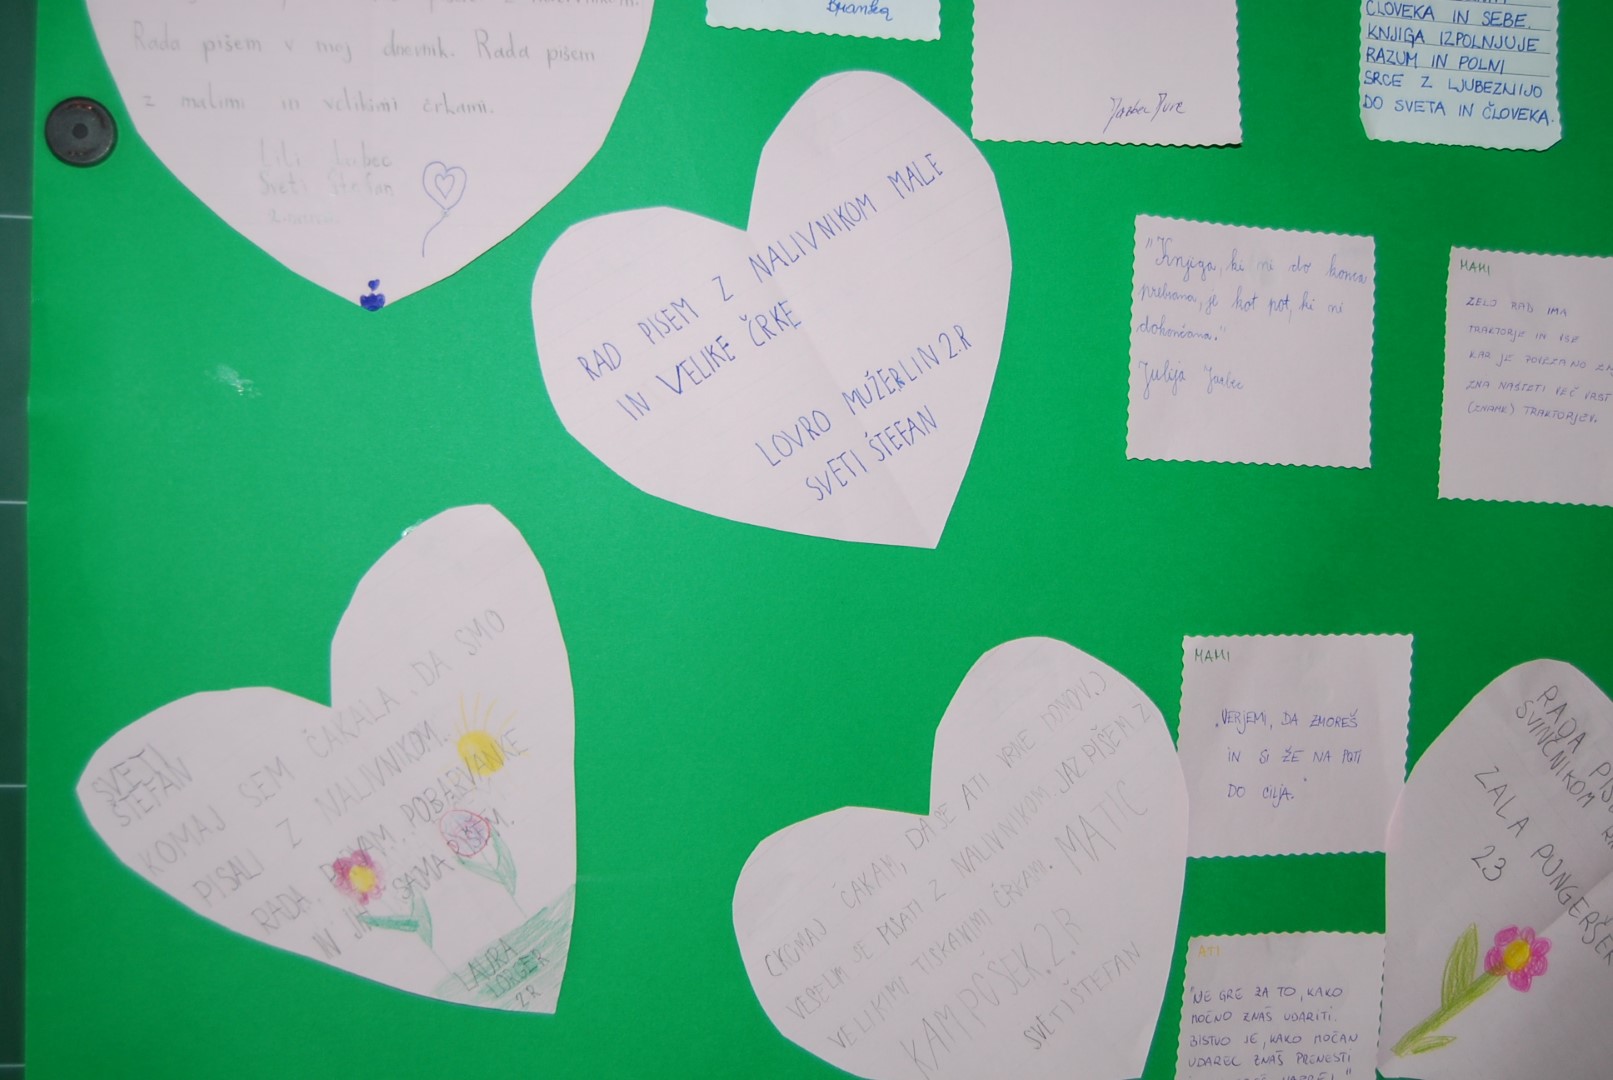 Rada pišem v moj dnevnik. Rada pišem
z malimi in velikimi črkami.
Lili Jarbec
Sveti Štefan
Branka
ČLOVEKA IN SEBE.
KNJIGA IZPOLNJUJE
RAZUM IN POLNI
SRCE Z LJUBEZNIJO
DO SVETA IN ČLOVEKA.
RAD PIŠEM Z NALIVNIKOM MALE
IN VELIKE ČRKE
LOVRO MUŽERLIN 2.R
SVETI ŠTEFAN
"Knjiga, ki ni do konca
prebrana, je kot pot, ki ni
dokončana."
Julija Jarbec
MAMI
ZELO RAD IMA
TRAKTORJE IN VSE
KAR JE POVEZANO Z
ZNA NAŠTETI VEČ VRST
(ZNAMK) TRAKTORJEV.
SVETI
ŠTEFAN
KOMAJ SEM ČAKALA, DA SMO
PISALI Z NALIVNIKOM.
RADA POBARVANKE
IN JIH SAMA
LAURA
LORGER
2.R
(KOMAJ ČAKAM, DA SE ATI VRNE DOMOV.)
VESELIM SE PISATI Z NALIVNIKOM. JAZ PIŠEM Z
VELIKIMI TISKANIMI ČRKAMI. MATIC
KAMPOŠEK. 2.R
SVETI ŠTEFAN
MAMI
"VERJEMI, DA ZMOREŠ
IN SI ŽE NA POTI
DO CILJA."
RADA
SVINČNIKOM
ZALA PUNGERŠEK
23
ATI
"NE GRE ZA TO, KAKO
MOČNO ZNAŠ UDARITI.
BISTVO JE, KAKO MOČAN
UDAREC ZNAŠ PRENESTI